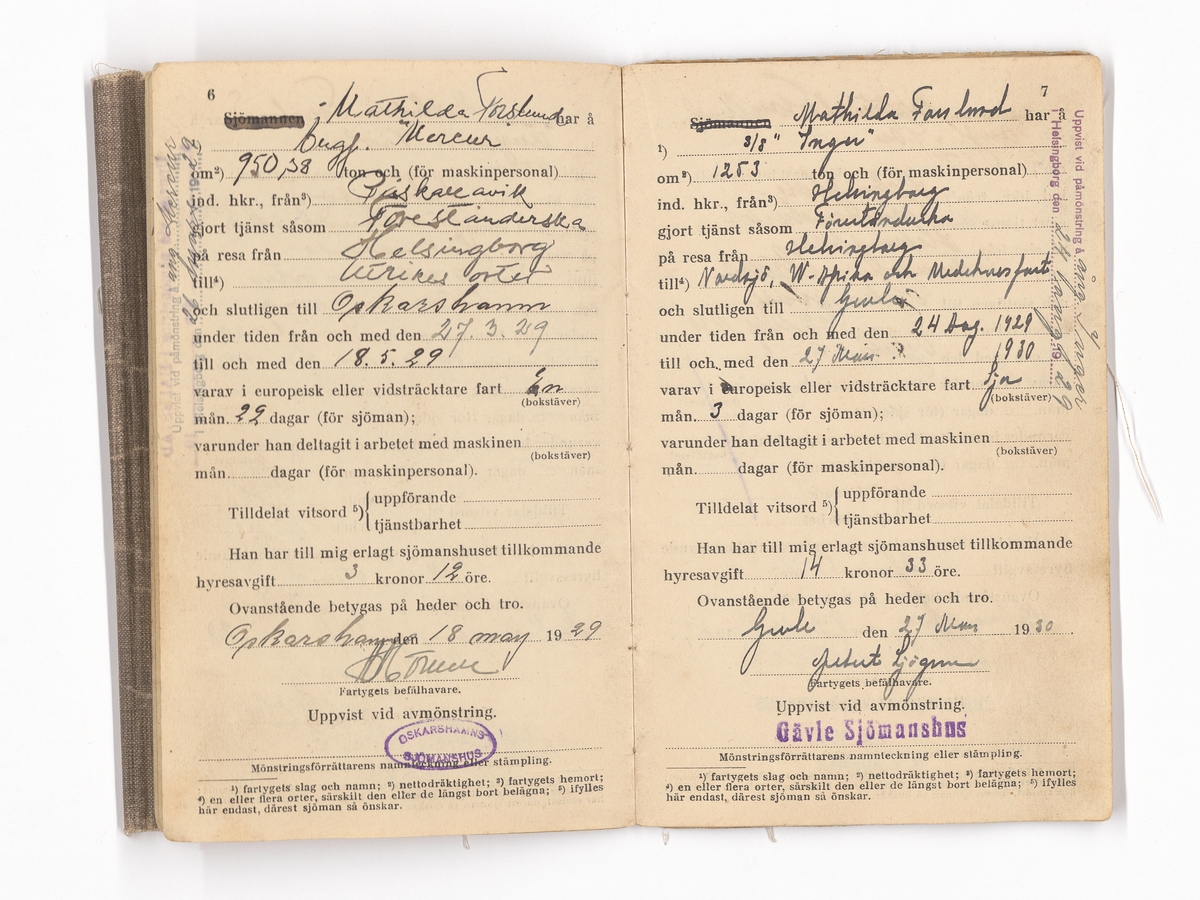 6
Sjömannen Mathilda Forslund har å
ång. Mercur
om²) 950,38 ton och (för maskinpersonal)
ind. hkr., från³) Påskallavik
gjort tjänst såsom Förestånderska
på resa från Helsingborg
till⁴) Utrikes orter
och slutligen till Oskarshamn
under tiden från och med den 27.3.29
till och med den 18.5.29
varav i europeisk eller vidsträcktare fart En
(bokstäver)
mån. 22 dagar (för sjöman);
varunder han deltagit i arbetet med maskinen
(bokstäver)
mån. dagar (för maskinpersonal).
Tilldelat vitsord ⁵) { uppförande
tjänstbarhet
Han har till mig erlagt sjömanshuset tillkommande
hyresavgift 3 kronor 12 öre.
Ovanstående betygas på heder och tro.
Oskarshamn den 18 may 1929
Fartygets befälhavare.
Uppvist vid avmönstring.
OSKARSHAMNS
SJÖMANSHUS
Mönstringsförrättarens namnteckning eller stämpling.
¹) fartygets slag och namn; ²) nettodräktighet; ³) fartygets hemort;
⁴) en eller flera orter, särskilt den eller de längst bort belägna; ⁵) ifylles
här endast, därest sjöman så önskar.
Uppvist vid påmönstring å ång Mercur
Helsingborg den 26 19 29
7
Sjömannen Mathilda Forslund har å
¹) s/s "Inger"
om²) 1253 ton och (för maskinpersonal)
ind. hkr., från³) Helsingborg
gjort tjänst såsom Föreståndarska
på resa från Helsingborg
till⁴) Nordsjö, W-Afrika och Medelhavsfart
och slutligen till Gevle
under tiden från och med den 24 Aug. 1929
till och med den 27 Mars 1930
varav i europeisk eller vidsträcktare fart Sju
(bokstäver)
mån. 3 dagar (för sjöman);
varunder han deltagit i arbetet med maskinen
(bokstäver)
mån. dagar (för maskinpersonal).
Tilldelat vitsord ⁵) { uppförande
tjänstbarhet
Han har till mig erlagt sjömanshuset tillkommande
hyresavgift 14 kronor 33 öre.
Ovanstående betygas på heder och tro.
Gevle den 27 Mars 1930.
Sjögren
Fartygets befälhavare.
Uppvist vid avmönstring.
Gävle Sjömanshus
Mönstringsförrättarens namnteckning eller stämpling.
¹) fartygets slag och namn; ²) nettodräktighet; ³) fartygets hemort;
⁴) en eller flera orter, särskilt den eller de längst bort belägna; ⁵) ifylles
här endast, därest sjöman så önskar.
Uppvist vid påmönstring å ång Inger
Helsingborg den 24 19 29